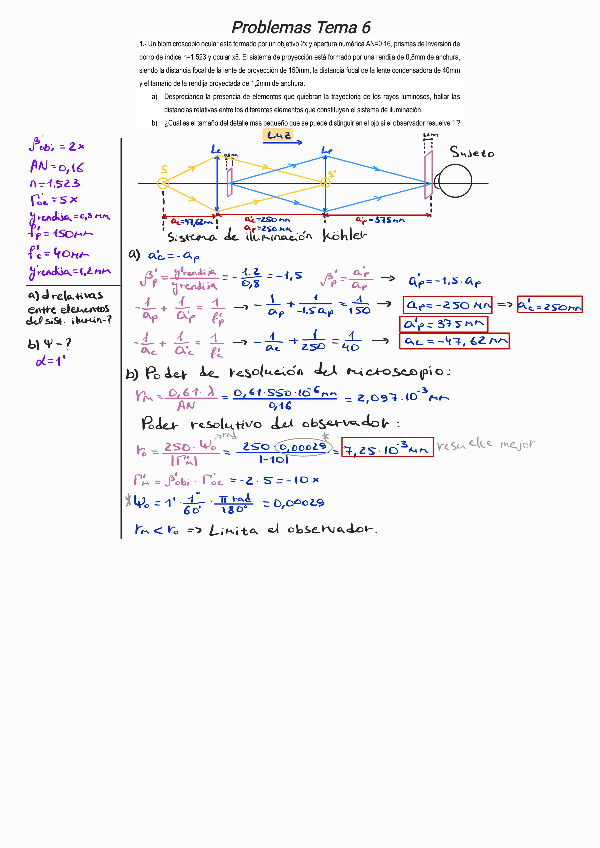 Problemas Tema 6
1.- Un biomicroscopio ocular está formado por un objetivo 2x y apertura numérica AN=0.16, prismas de inversión de
porro de índice n=1,523 y ocular x5. El sistema de proyección está formado por una rendija de 0,8mm de anchura,
siendo la distancia focal de la lente de proyección de 150mm, la distancia focal de la lente condensadora de 40mm
y el tamaño de la rendija proyectada de 1,2mm de anchura.
a) Despreciando la presencia de elementos que quiebran la trayectoria de los rayos luminosos, hallar las
distancias relativas entre los diferentes elementos que constituyen el sistema de iluminación.
b) ¿Cuál es el tamaño del detalle más pequeño que se puede distinguir en el ojo si el observador resuelve 1'?
β'obj = 2x
AN = 0,16
n = 1,523
Γ'oc = 5x
y rendija = 0,8 mm
f'p = 150 mm
f'c = 40 mm
y' rendija = 1,2 mm
a) d relativas
entre elementos
del sist. ilumin-?
b) Ψ - ?
α = 1'
Luz
S Lc Lp S' Sujeto
ac = 47,62 mm a'c = 250 mm a'p = 375 mm
ap = 250 mm
Sistema de iluminación Köhler
a) a'c = -ap
β'p = y'rendija / y rendija = - 1.2 / 0,8 = -1,5 β'p = a'p / ap → a'p = -1,5 · ap
- 1/ap + 1/a'p = 1/f'p → - 1/ap + 1/-1,5ap = 1/150 → ap = -250 mm => a'c = 250 mm
a'p = 375 mm
- 1/ac + 1/a'c = 1/f'c → - 1/ac + 1/250 = 1/40 → ac = -47,62 mm
b) Poder de resolución del microscopio:
rm = 0,61 · λ / AN = 0,61 · 550 · 10⁻⁶ mm / 0,16 = 2,097 · 10⁻³ mm
Poder resolutivo del observador:
ro = 250 · Ψo rad / |Γ'M| = 250 · 0,00029 * / |-10| = 7,25 · 10⁻³ mm resuelve mejor
Γ'M = β'obj · Γ'oc = -2 · 5 = -10x
* Ψo = 1' · 1° / 60' · π rad / 180° = 0,00029
rM < ro => Limita el observador.